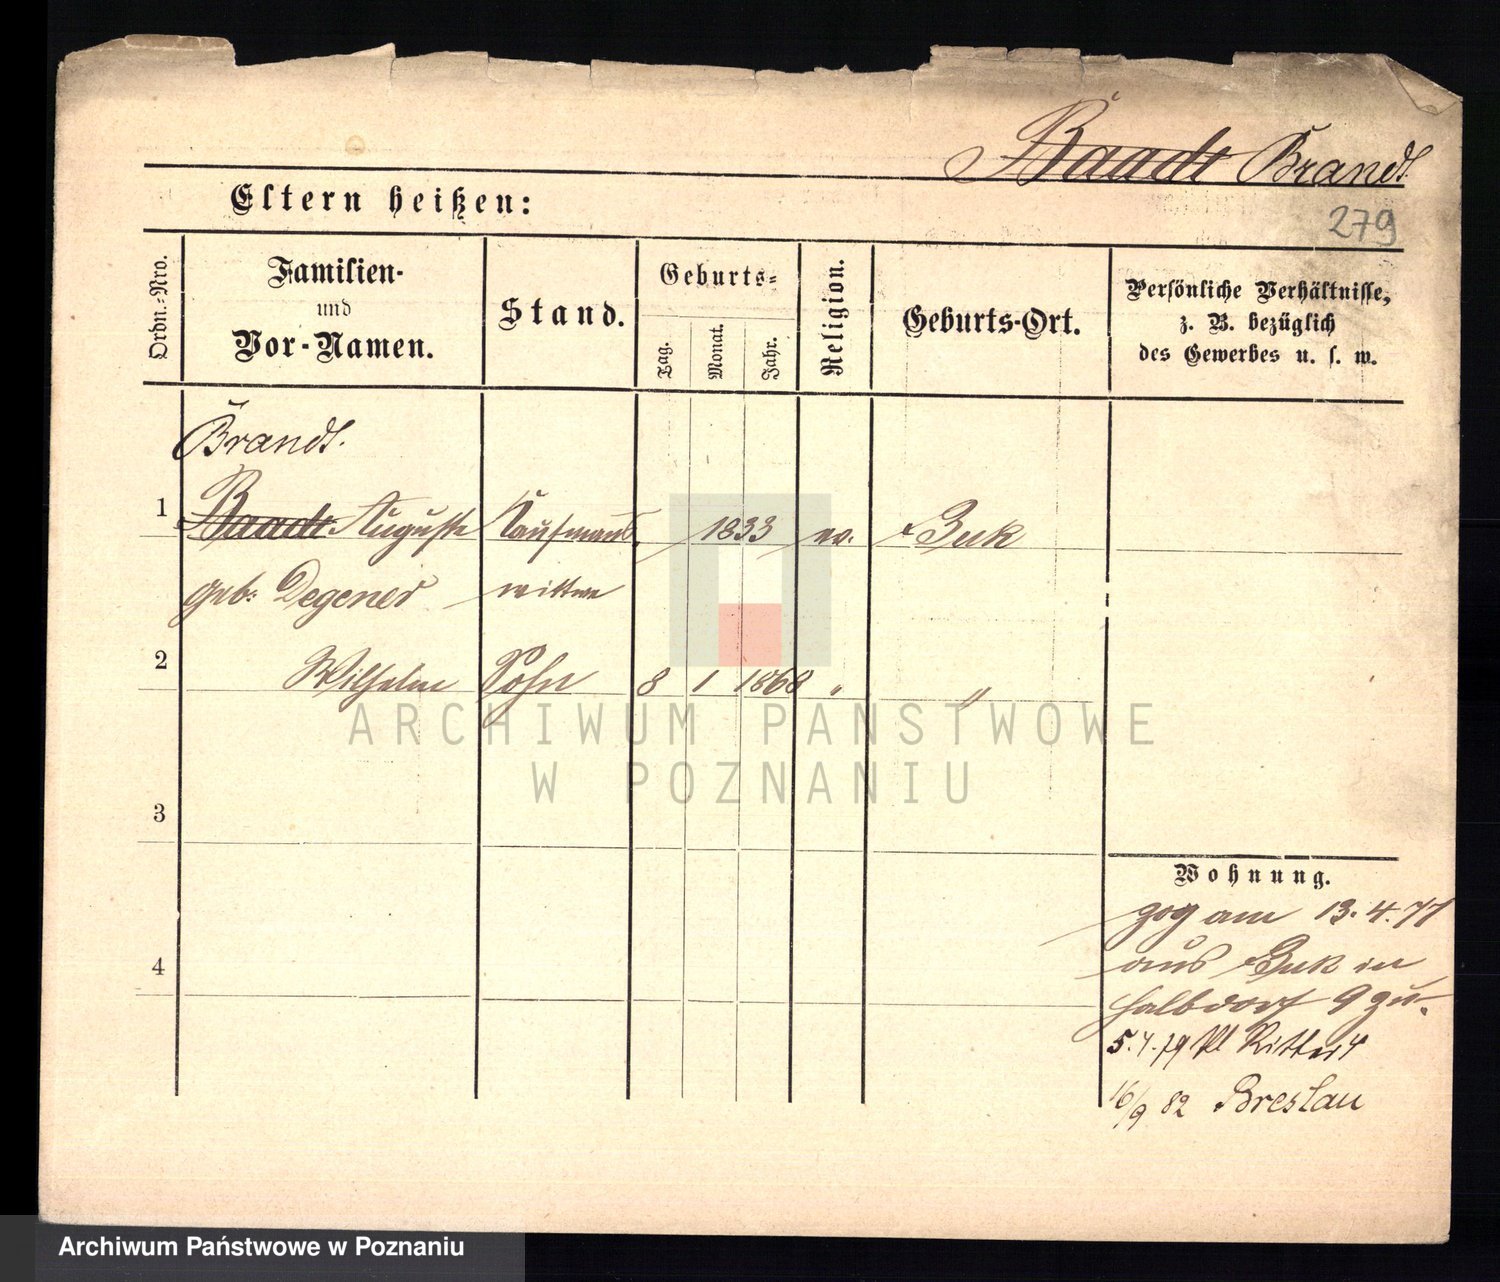 Baadt Brandt
279
Eltern heißen:
Ordn.-Nro.
Familien-
und
Vor-Namen.
Stand.
Geburts-
Tag.
Monat.
Jahr.
Religion.
Geburts-Ort.
Persönliche Verhältnisse,
z. B. bezüglich
des Gewerbes u. s. w.
Brandt.
1 Baadt Auguste Kaufmanns 1833 ev. Buk
geb: Degener wittwe
2 Wilhelm Sohn 8 1 1868 " "
ARCHIWUM PAŃSTWOWE
W POZNANIU
3
4
Wohnung.
zog am 13.4.77
aus Buk in
Halbdorf 9 zu.
5.4.79 Kl Ritter 4
16/9 82 Breslau
Archiwum Państwowe w Poznaniu